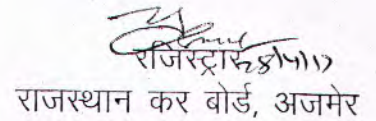 रजिस्ट्रार
राजस्थान कर बोर्ड, अजमेर